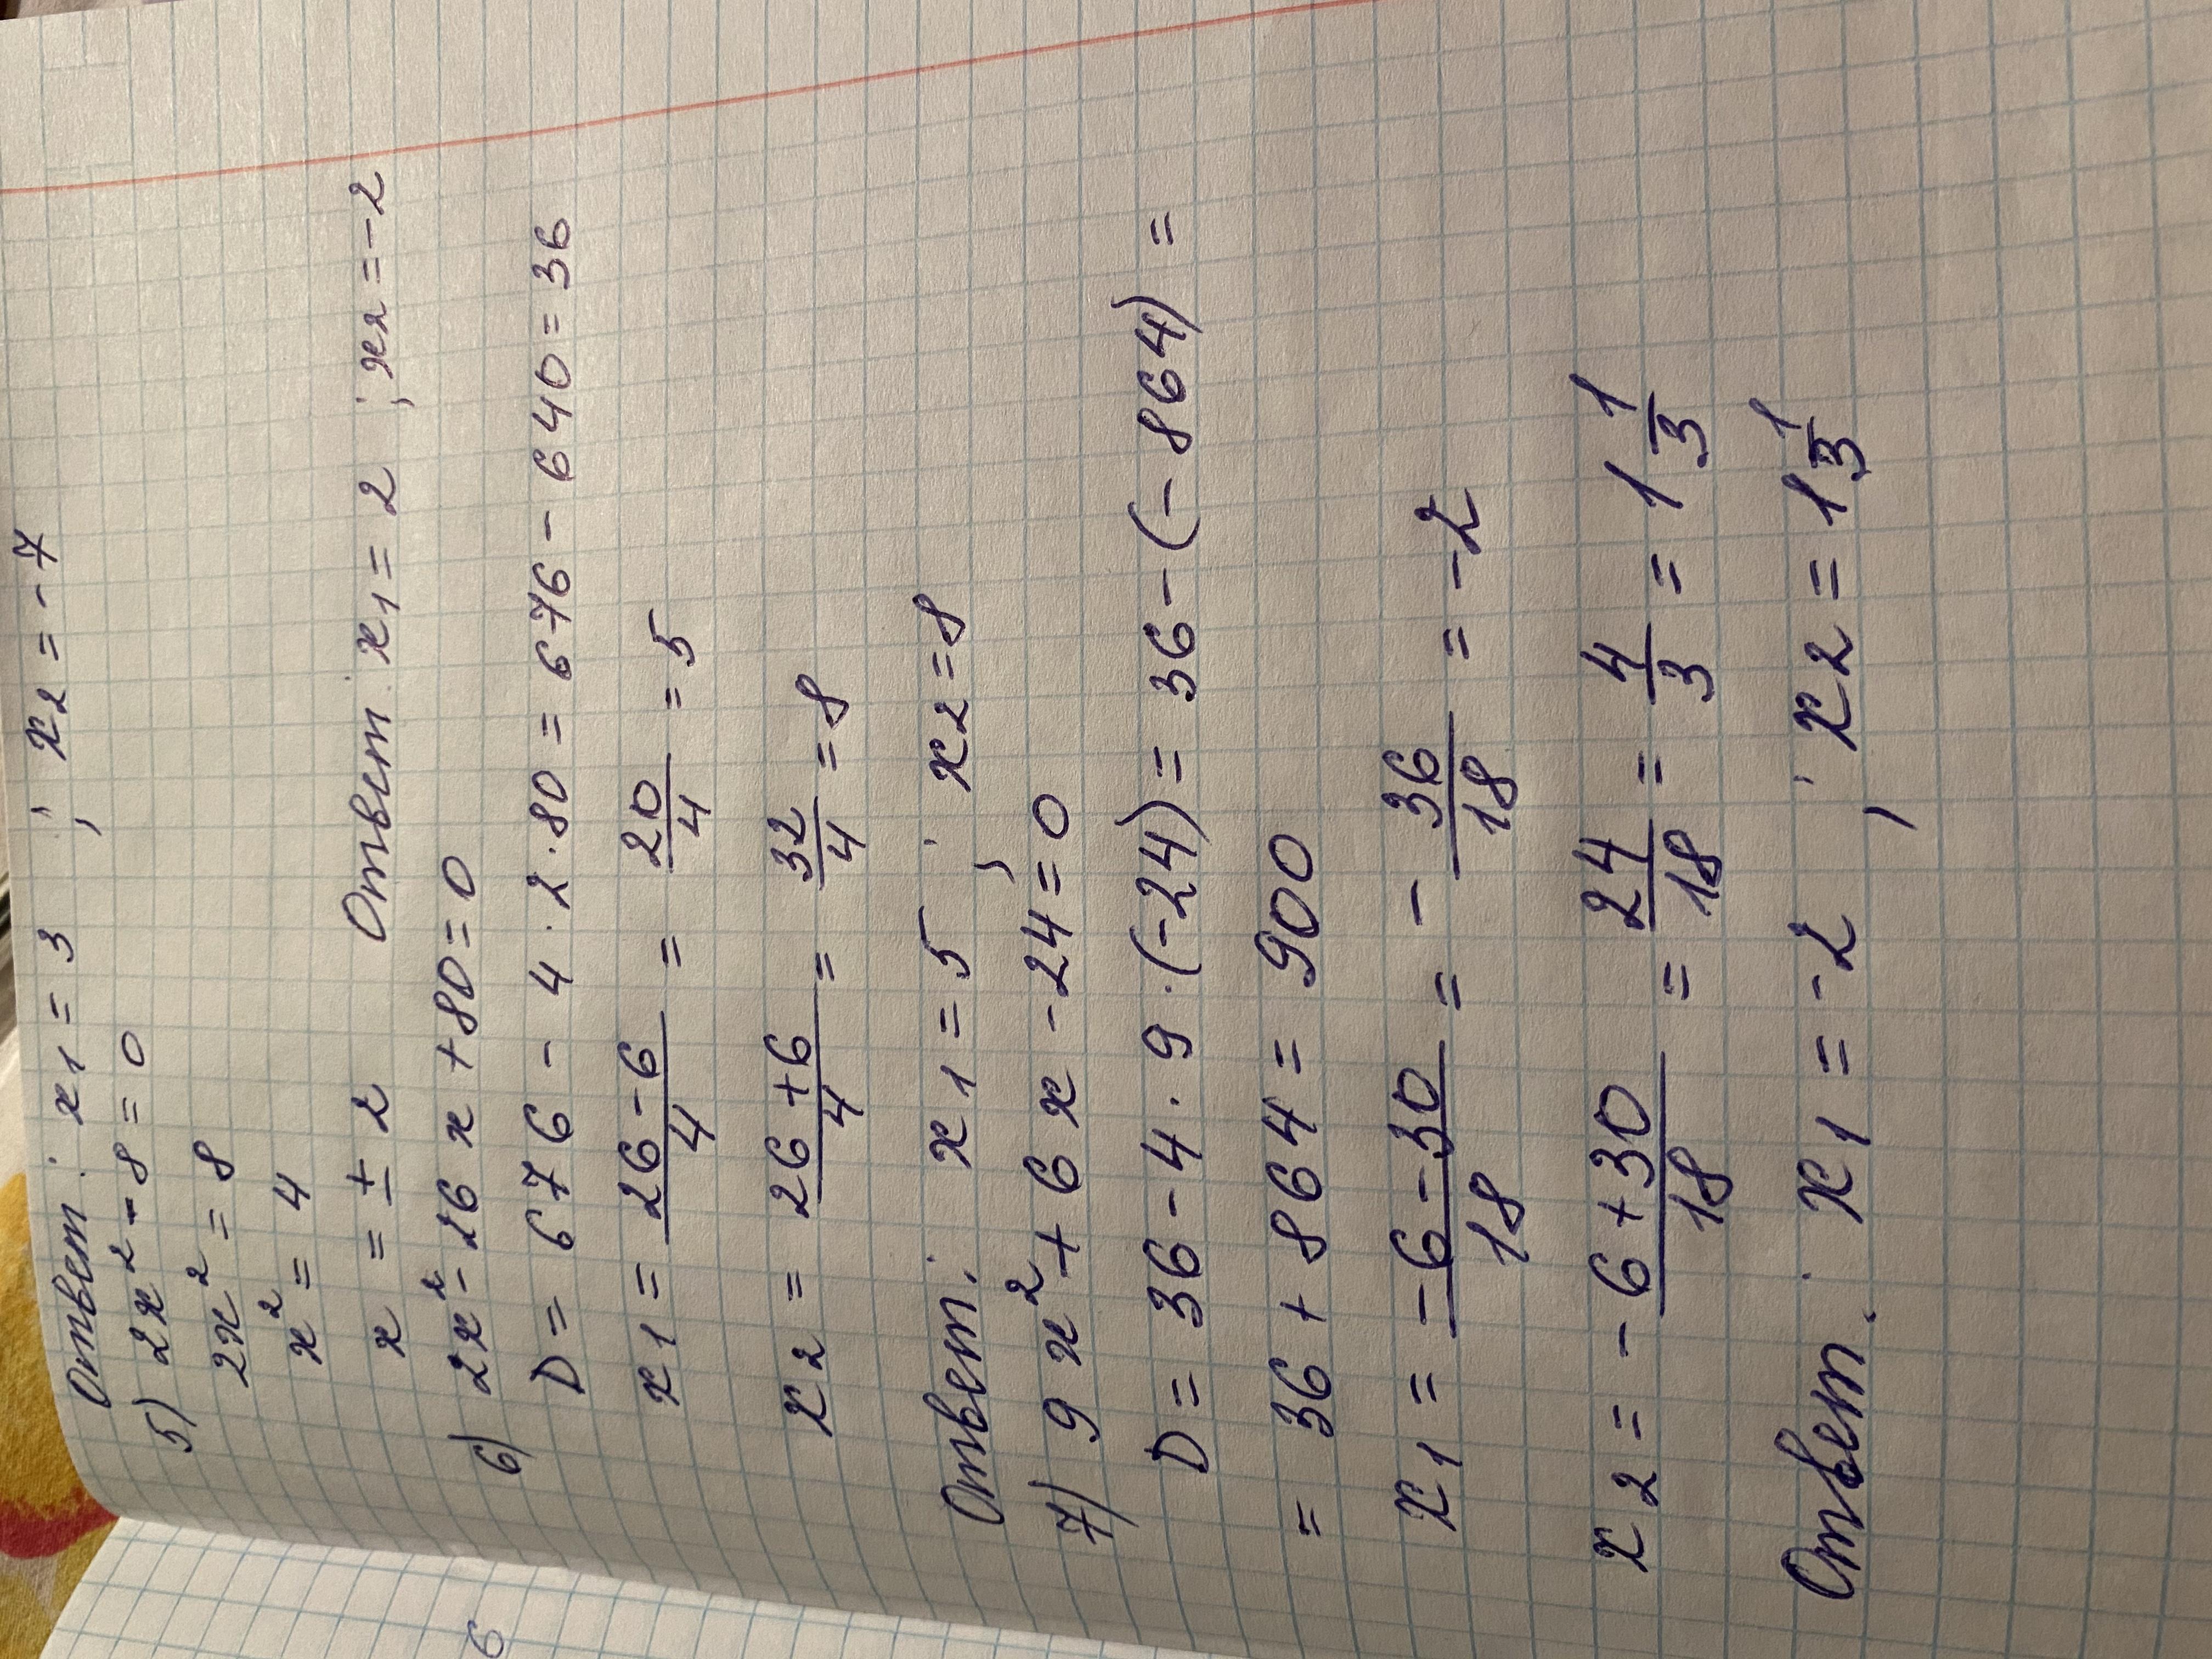 Ответ: x₁ = 3 ; x₂ = -7
5) 2x² - 8 = 0
2x² = 8
x² = 4
x = ± 2 Ответ: x₁ = 2 ; x₂ = -2
6) 2x² - 26x + 80 = 0
D = 676 - 4 · 2 · 80 = 676 - 640 = 36
x₁ = (26 - 6)/4 = 20/4 = 5
x₂ = (26 + 6)/4 = 32/4 = 8
Ответ: x₁ = 5 ; x₂ = 8
7) 9x² + 6x - 24 = 0
D = 36 - 4 · 9 · (-24) = 36 - (-864) =
= 36 + 864 = 900
x₁ = (-6 - 30)/18 = - 36/18 = -2
x₂ = (-6 + 30)/18 = 24/18 = 4/3 = 1 1/3
Ответ: x₁ = -2 ; x₂ = 1 1/3
6